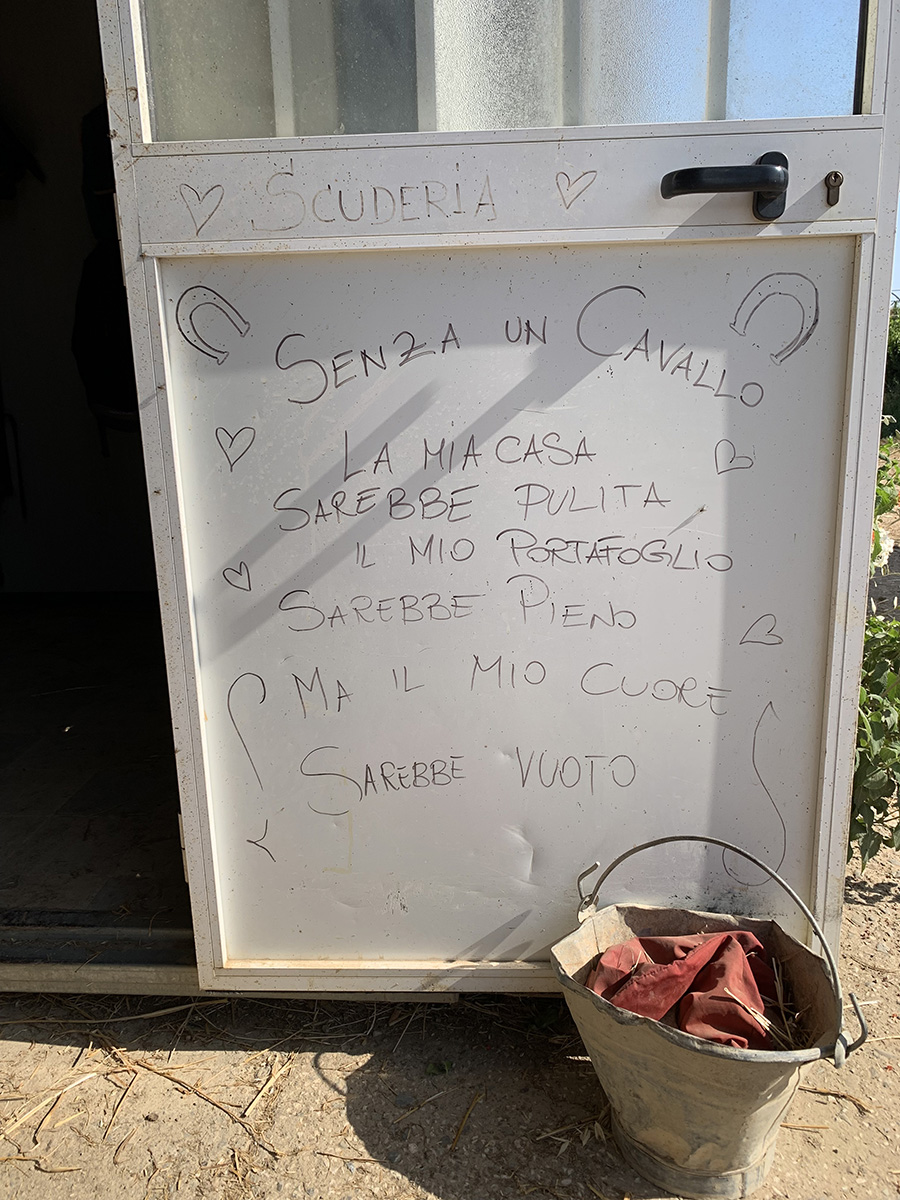 SCUDERIA
SENZA UN CAVALLO
LA MIA CASA
SAREBBE PULITA
IL MIO PORTAFOGLIO
SAREBBE PIENO
MA IL MIO CUORE
SAREBBE VUOTO